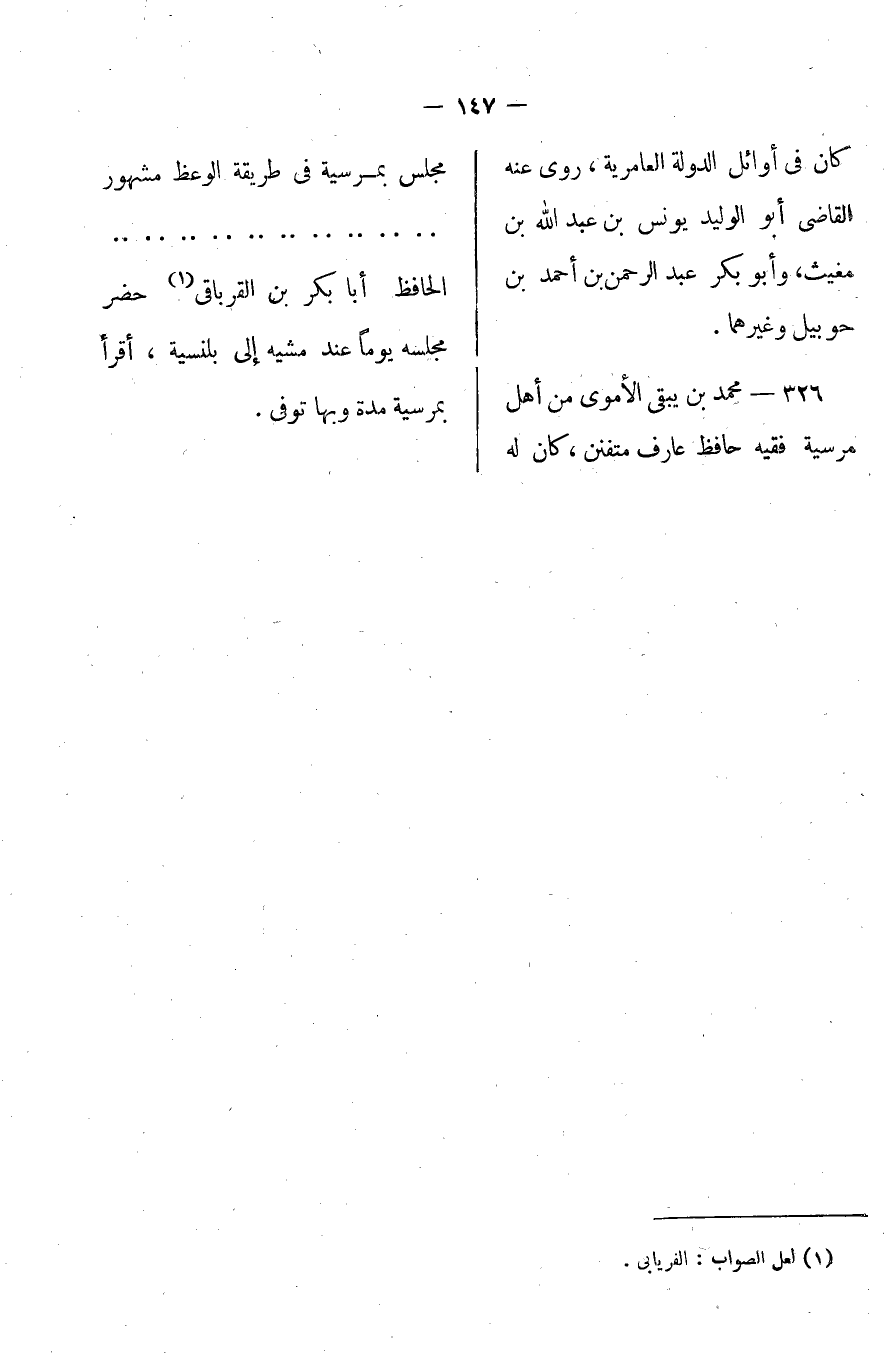 — ١٤٧ —
كان فى أوائل الدولة العامرية ، روى عنه
القاضى أبو الوليد يونس بن عبد الله بن
مغيث، وأبو بكر عبد الرحمن بن أحمد بن
حوبيل وغيرهما .
٣٢٦ — محمد بن يبقى الأموى من أهل
مرسية فقيه حافظ عارف متفنن ، كان له
مجلس بمـرسية فى طريقة الوعظ مشهور
.. .. .. .. .. .. .. .. .. ..
الحافظ أبا بكر بن القرباقى(١) حضر
مجلسه يوماً عند مشيه إلى بلنسية ، أقرأ
بمرسية مدة وبها توفى .
(١) لعل الصواب : الفريابى .